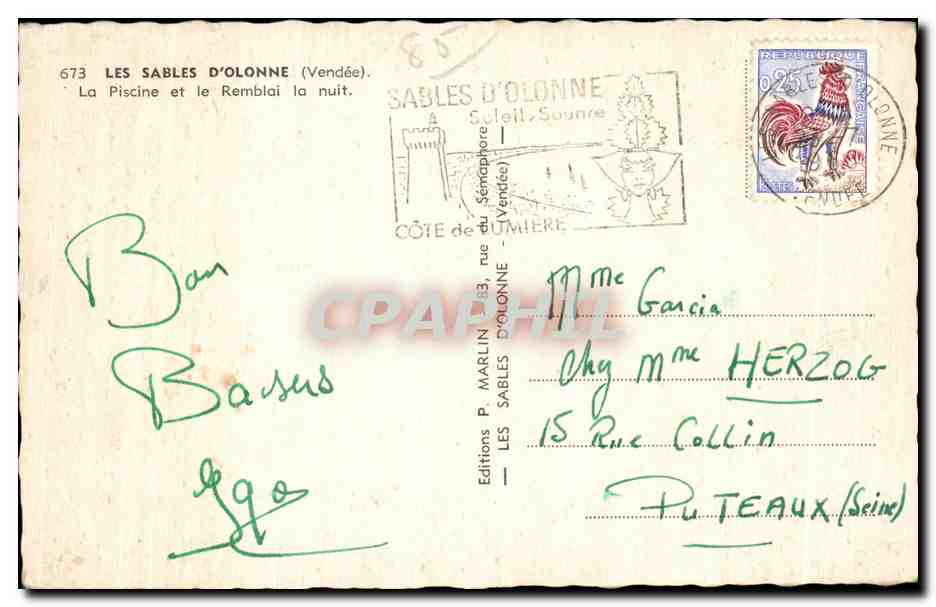 85
673 LES SABLES D'OLONNE (Vendée).
La Piscine et le Remblai la nuit.
SABLES D'OLONNE
Soleil, Sourire
CÔTE de LUMIÈRE
REPUBLIQUE
FRANÇAISE
0,25
POSTES
OLONNE
Bon
Baisers
Editions P. MARLIN 83, rue du Sémaphore
— LES SABLES D'OLONNE - (Vendée) —
CPAPHIL
Mme Garcia
Chez Mme HERZOG
15 Rue Collin
PUTEAUX (Seine)